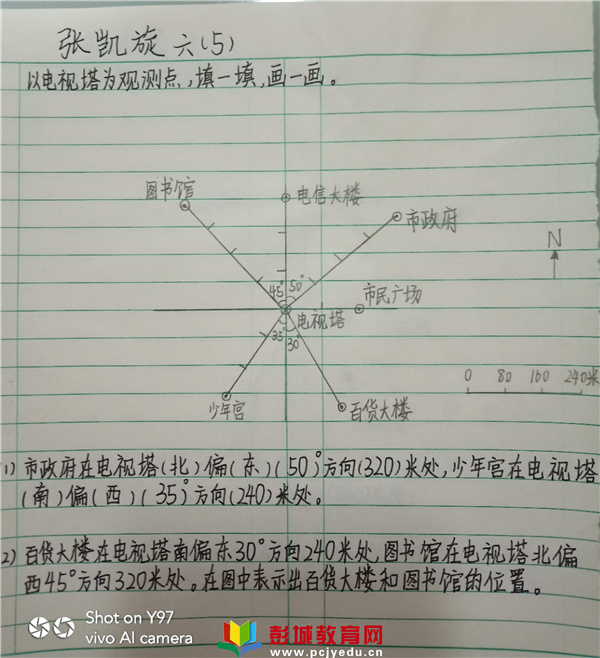 张凯旋 六(5)
以电视塔为观测点,填一填,画一画。
图书馆
电信大楼
市政府
N
45° 50°
市民广场
电视塔
35° 30°
0 80 160 240米
少年宫
百货大楼
1) 市政府在电视塔(北)偏(东)(50)°方向(320)米处,少年宫在电视塔
(南)偏(西)(35)°方向(240)米处。
2) 百货大楼在电视塔南偏东30°方向240米处,图书馆在电视塔北偏
西45°方向320米处。在图中表示出百货大楼和图书馆的位置。
Shot on Y97
vivo AI camera
彭城教育网
www.pcjyedu.cn